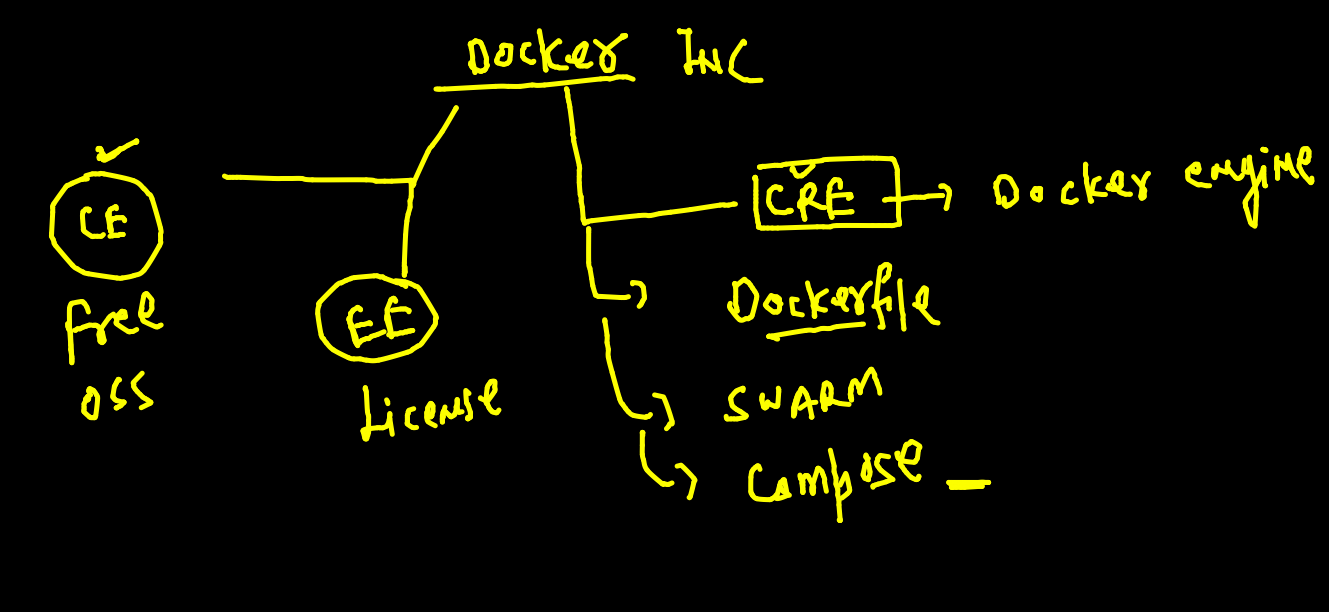 Docker INC
CE
free
OSS
EE
License
CRE → Docker engine
Dockerfile
SWARM
Compose